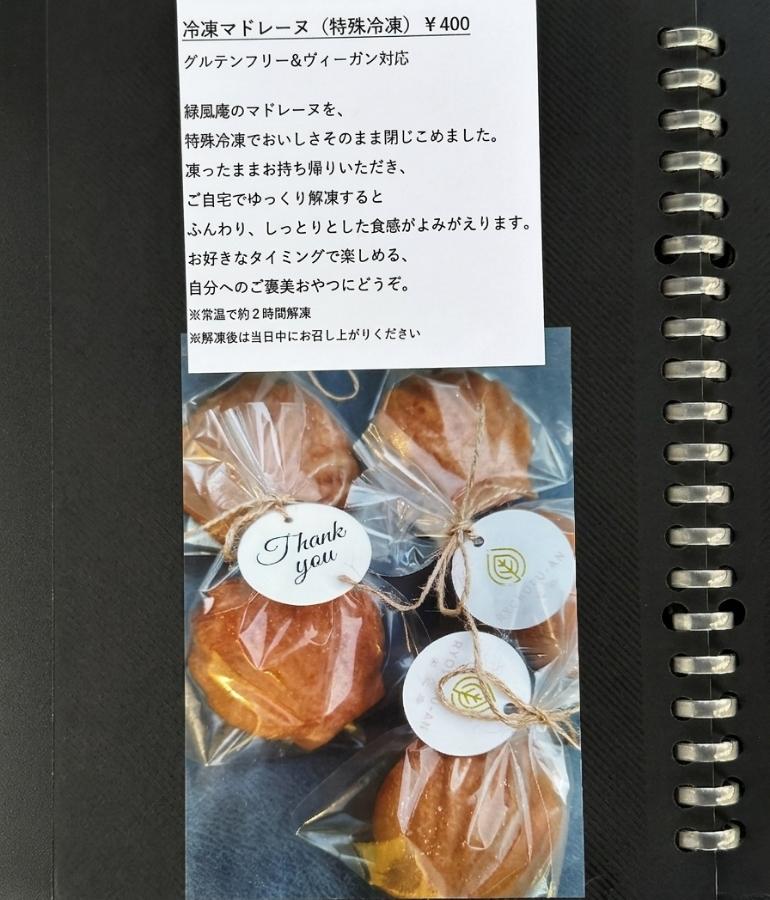 冷凍マドレーヌ（特殊冷凍）￥400
グルテンフリー&ヴィーガン対応
緑風庵のマドレーヌを、
特殊冷凍でおいしさそのまま閉じこめました。
凍ったままお持ち帰りいただき、
ご自宅でゆっくり解凍すると
ふんわり、しっとりとした食感がよみがえります。
お好きなタイミングで楽しめる、
自分へのご褒美おやつにどうぞ。
※常温で約２時間解凍
※解凍後は当日中にお召し上がりください
Thank
you